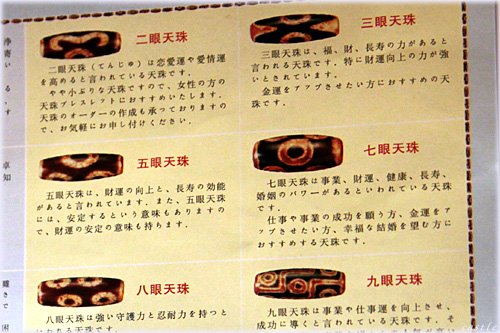 二眼天珠
二眼天珠(てんじゅ)は恋愛運や愛情運
を高めると言われている天珠です。
やや小ぶりな天珠ですので、女性の方の
天珠ブレスレットにおすすめいたします。
天珠のオーダーの作成も承っておりますの
で、お気軽にお申し付けください。
三眼天珠
三眼天珠は、福、財、長寿の力があると
言われる天珠です。特に財運向上の力が強
いとされています。
金運をアップさせたい方におすすめの天
珠です。
五眼天珠
五眼天珠は、財運の向上と、長寿の効能
があると言われています。また、五眼天珠
には、安定するという意味もありますの
で、財運の安定の意味も持ちます。
七眼天珠
七眼天珠は事業、財運、健康、長寿、
婚姻のパワーがあるといわれている天珠
です。
仕事や事業の成功を願う方、金運をア
ップさせたい方、幸福な結婚を望む方に
おすすめする天珠です。
八眼天珠
八眼天珠は強い守護力と忍耐力を持つと
いわれる天珠です。
九眼天珠
九眼天珠は事業や仕事運を向上させ、
成功に導くと言われている天珠です。そ